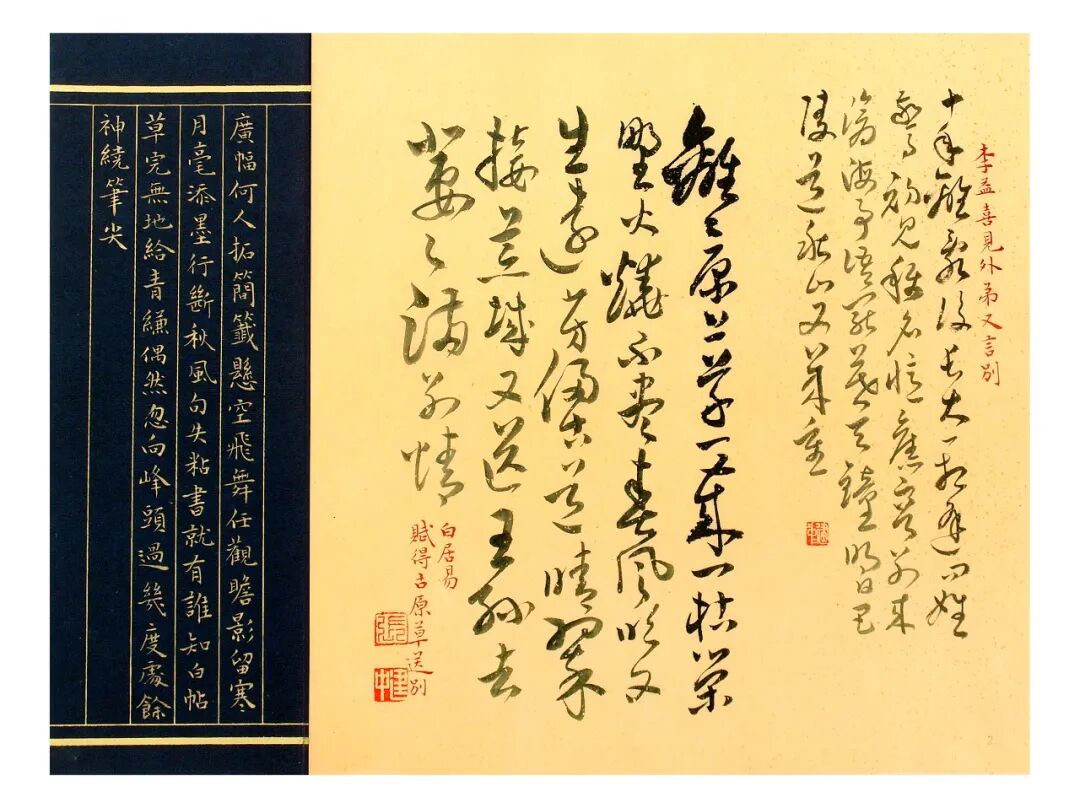 李益喜見外弟又言別
十年離亂後長大一相逢問姓
驚初見稱名憶舊容別來
滄海事語罷暮天鐘明日巴
陵道秋山又幾重
離々原上草一歲一枯榮
野火燒不盡春風吹又
生遠芳侵古道晴翠
接荒城又送王孫去
萋々滿別情
白居易
賦得古原草送別
張
建中
廣幅何人拓簡籤懸空飛舞任觀瞻影留寒
月毫添墨行斷秋風句失粘書就有誰知白帖
草完無地給青縑偶然忽向峰頭過幾度處餘
神繞筆尖